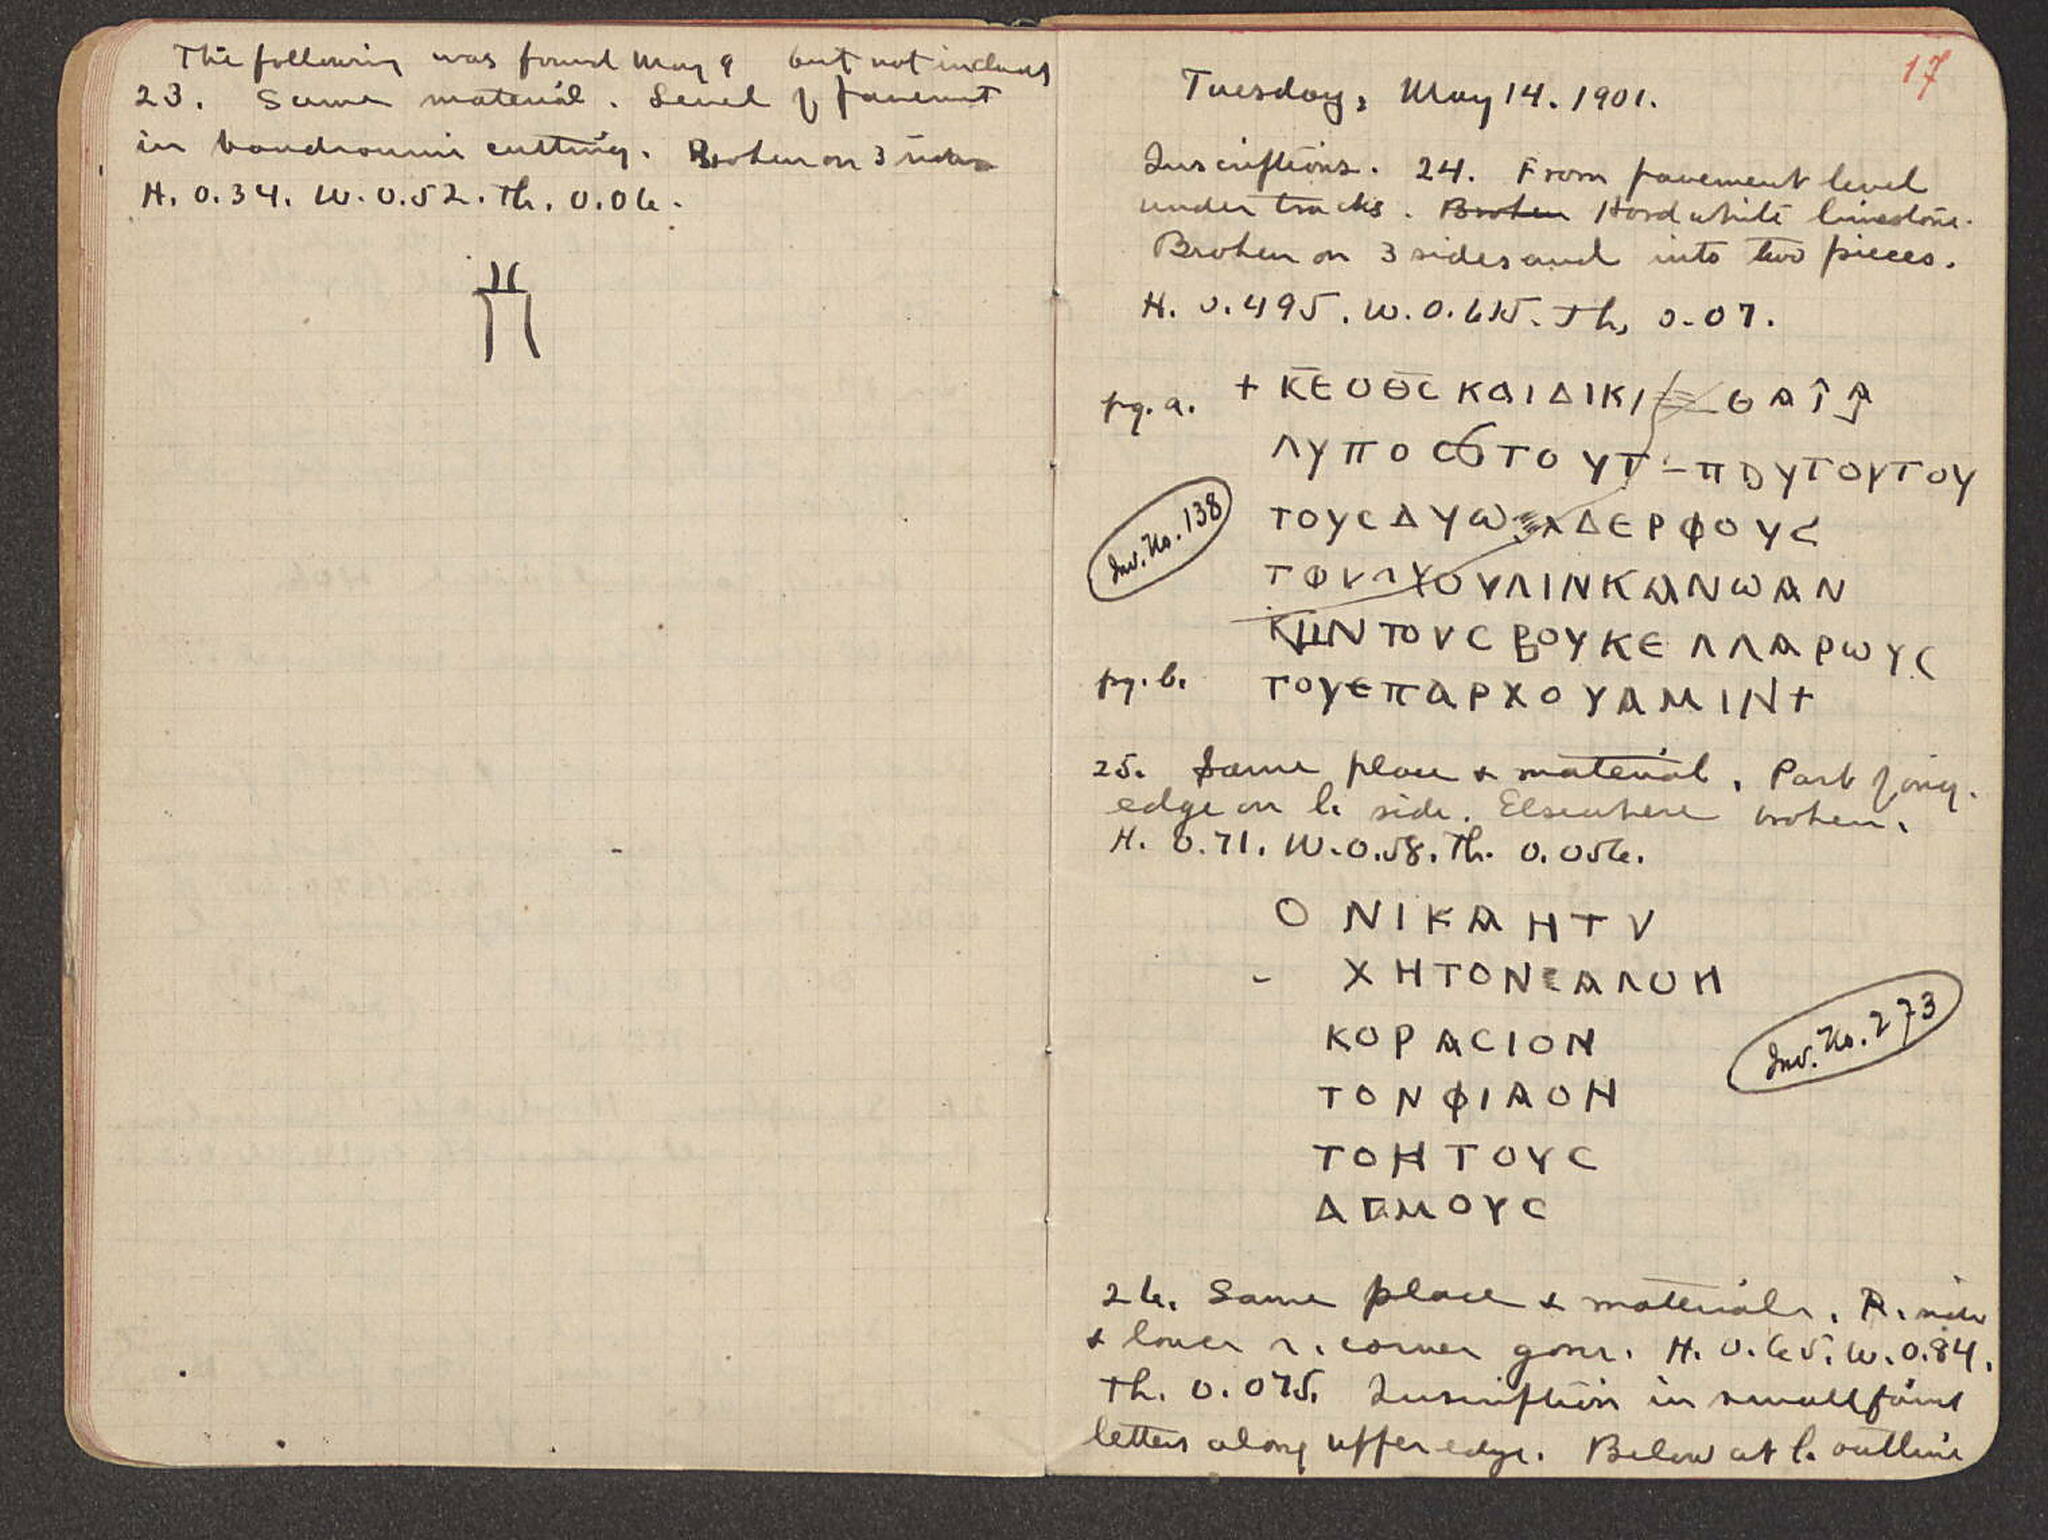 The following was found May 9 but not included
23. Same material. Level of pavement
in boudroumi cutting. Broken on 3 sides
H. 0.34. W. 0.52. Th. 0.06.
17
Tuesday, May 14. 1901.
Inscriptions. 24. From pavement level
under tracks. Broken Hard white limestone.
Broken on 3 sides and into two pieces.
H. 0.495. W. 0.615. Th. 0.07.
pg. a. + ΚΕΟΘC ΚΑΙ ΔΙΚΙ
ΛΥΠΟ ΤΟΥΤ - ΠΟΥΤΟΥΤΟΥ
Inv. No. 138
ΤΟΥC ΔΥω ΑΔΕΡΦΟΥC
ΟΥΛΙΝΚΑΝωΑΝ
ΤΟΥC ΒΟΥΚΕΛΛΑΡωΥC
pg. b. ΤΟΥΕΠΑΡΧΟΥΑΜΙΝ +
25. Same place & material. Part of orig.
edge on l. side. Elsewhere broken.
H. 0.71. W. 0.58. Th. 0.056.
Ο ΝΙΚΑΗΤV
- ΧΗΤΟΝ ΑΛΟΗ
ΚΟΡΑCΙΟΝ
Inv. No. 273
ΤΟΝΦΙΛΟΗ
ΤΟΗΤΟΥC
ΜΟΥC
26. Same place & material. R. side
& lower r. corner gone. H. 0.65. W. 0.84.
Th. 0.075. Inscription in small faint
letters along upper edge. Below at l. outline